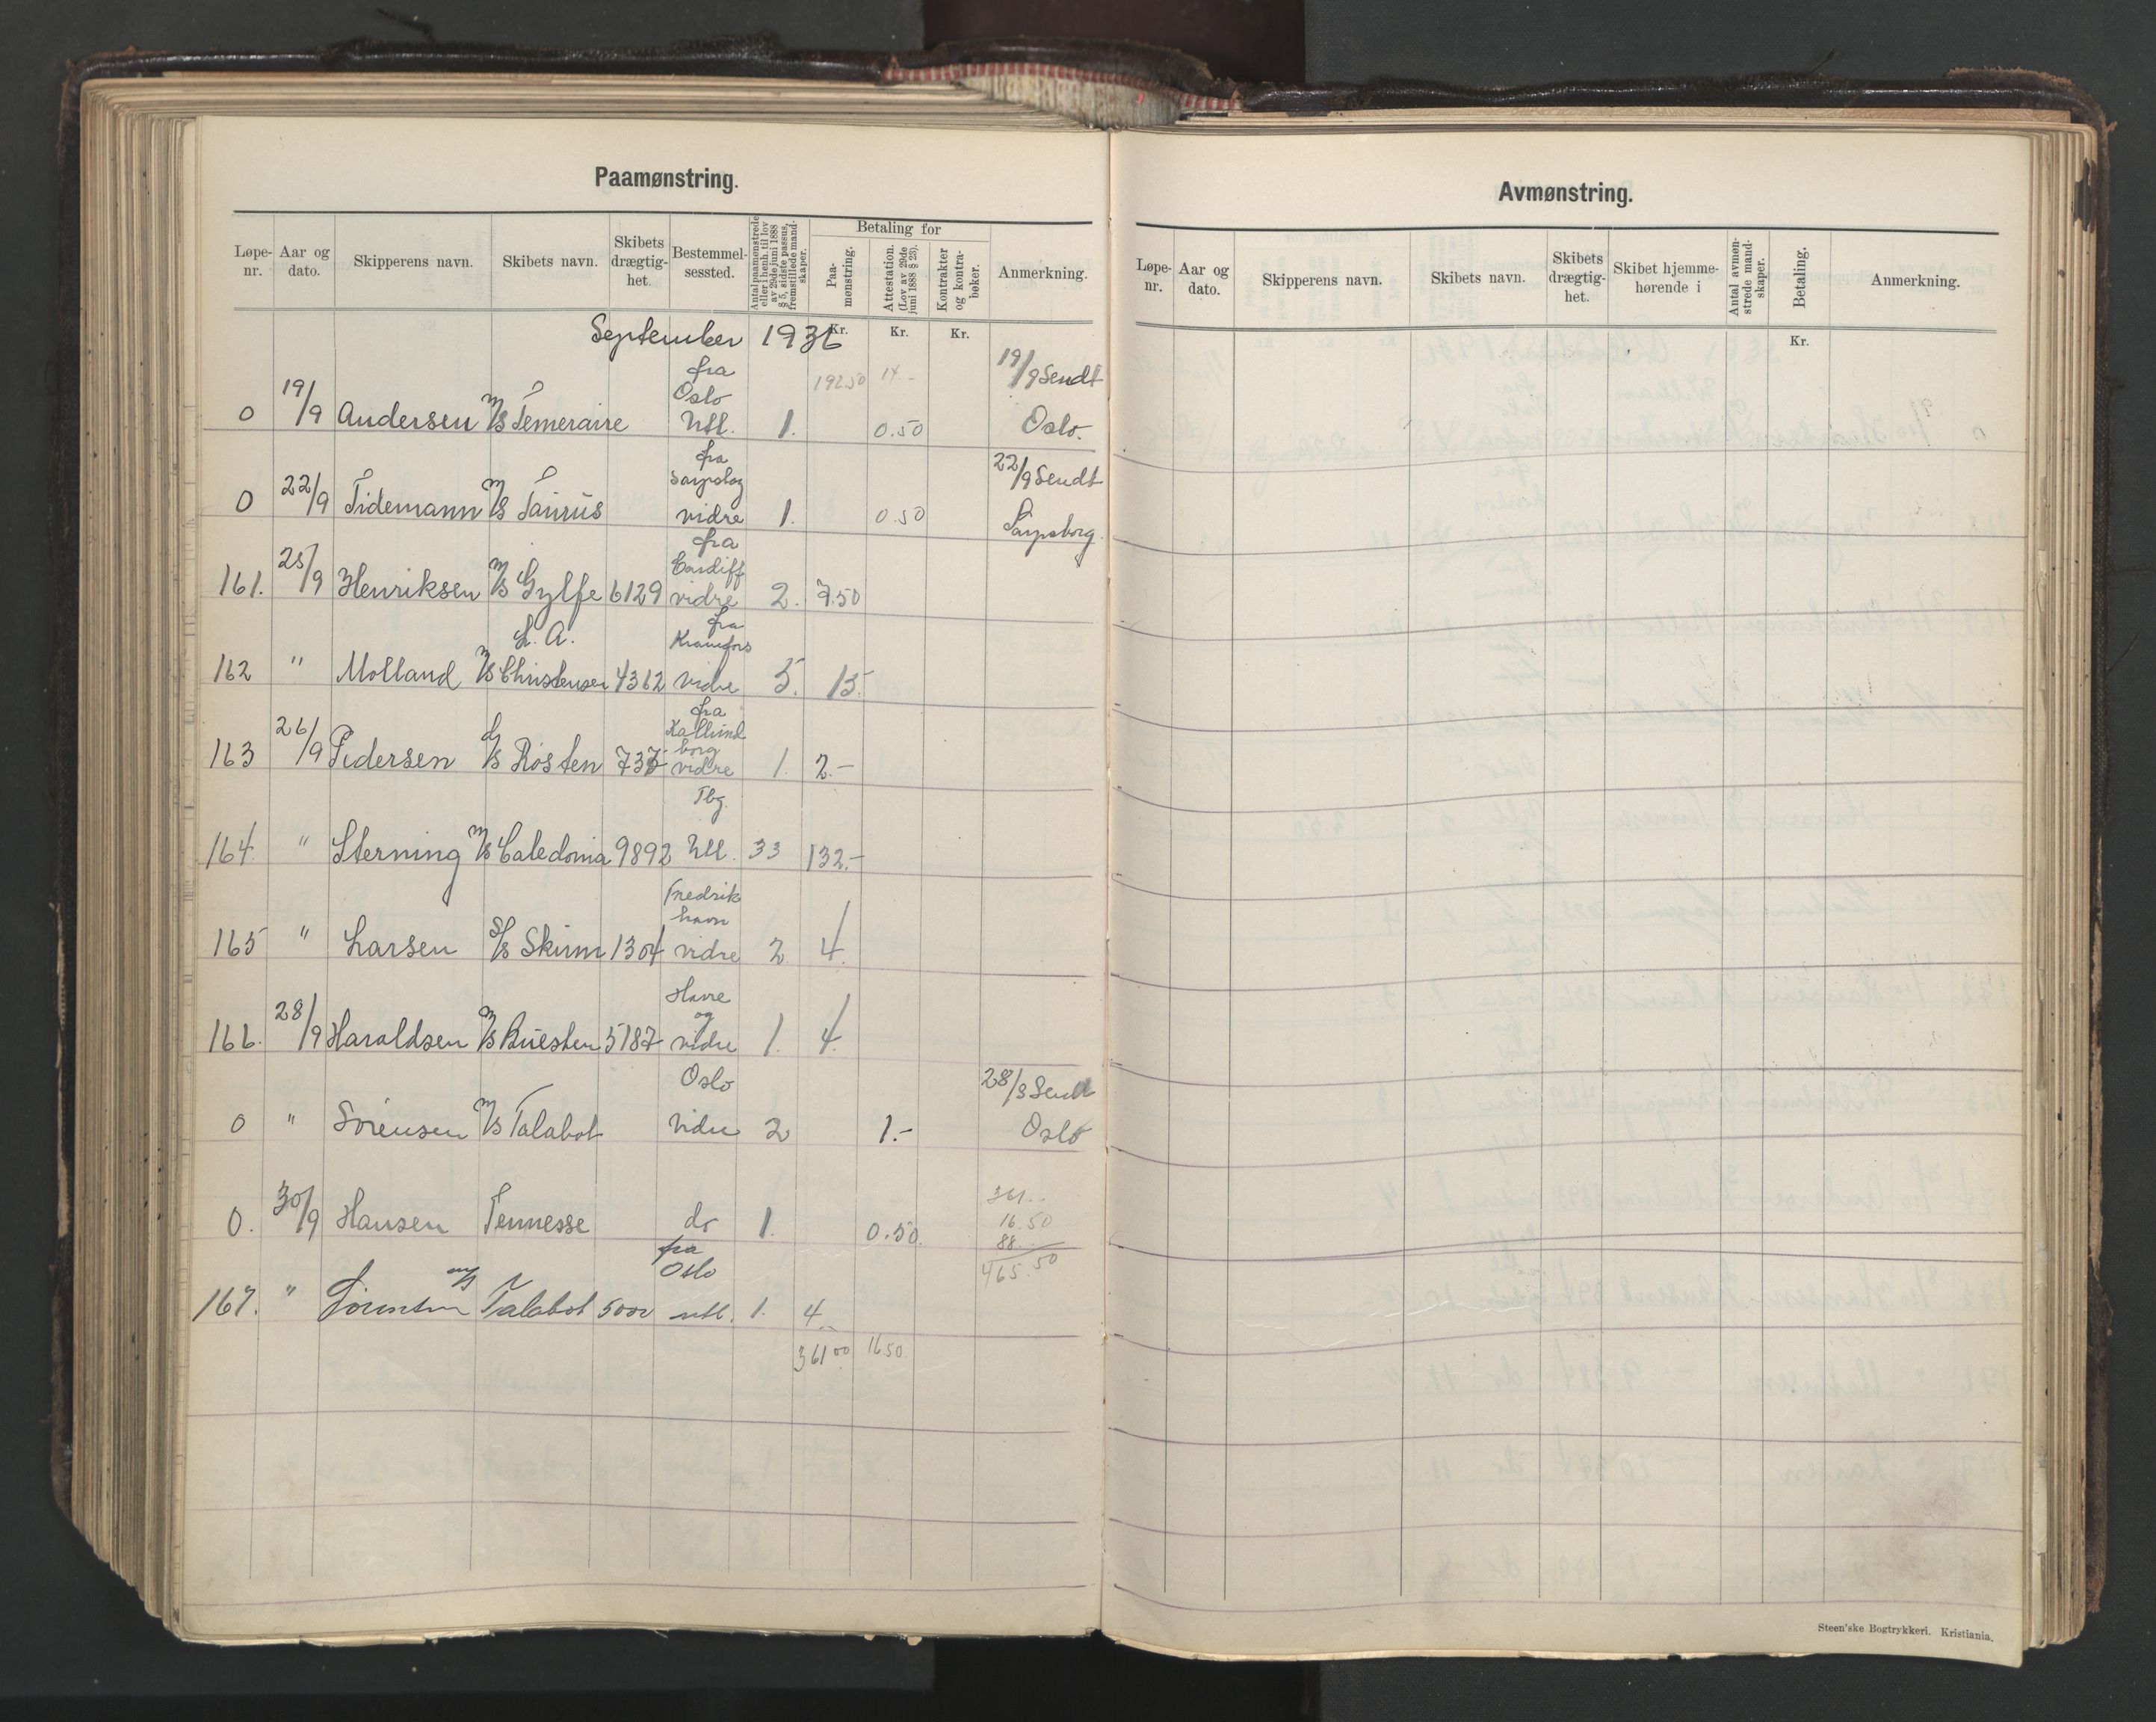 Paamønstring.
Løpe-nr. Aar og dato. Skipperens navn. Skibets navn. Skibets drægtig-het. Bestemmel-sessted. Antal paamønstrede eller i henh. til lov av 29de juni 1888 § 5, sidste passus, fremstillede mand-skaper. Betaling for Paa-mønstring. Attestation. (Lov av 29de juni 1888 § 23). Kontrakter og kontra-bøker. Anmerkning.
Kr. Kr. Kr.
September 1936
192.50 14.-
0 19/9 Andersen M/S Temeraire fra Oslo Utl. 1. 0.50 19/9 Sendt Oslo.
0 22/9 Tidemann M/S Taurus fra Sarpsbog vidre 1. 0.50 22/9 Sendt Sarpsborg.
161. 25/9 Henriksen M/S Gylfe 6129 fra Cardiff vidre 2. 7.50
162 " Molland M/S L. A. Christensen 4362 fra Kramfors vidre 5. 15.
163 26/9 Pedersen D/S Rosten 737 fra Kallundborg vidre 1. 2.-
164. " Sterning M/S Caledonia 9892 Tbg. Utl. 33 132.-
165 " Larsen S/S Skum 1304 Fredrikhavn vidre 2. 4.
166. 28/9 Haraldsen M/S 5187 Havre og vidre 1. 4.
0 " Sørensen M/S Talabot Oslo vidre 2 1.- 28/9 Sendt Oslo
0. 30/9 Hansen Tennesse do 1. 0.50.
361.-
16.50
88.-
465.50
167. " Sørensen M/S Talabot 5000 fra Oslo utl. 1. 4.-
361.00 16.50
Avmønstring.
Løpe-nr. Aar og dato. Skipperens navn. Skibets navn. Skibets drægtig-het. Skibet hjemme-hørende i Antal avmøn-strede mand-skaper. Betaling. Anmerkning.
Kr.
Steen'ske Bogtrykkeri. Kristiania.